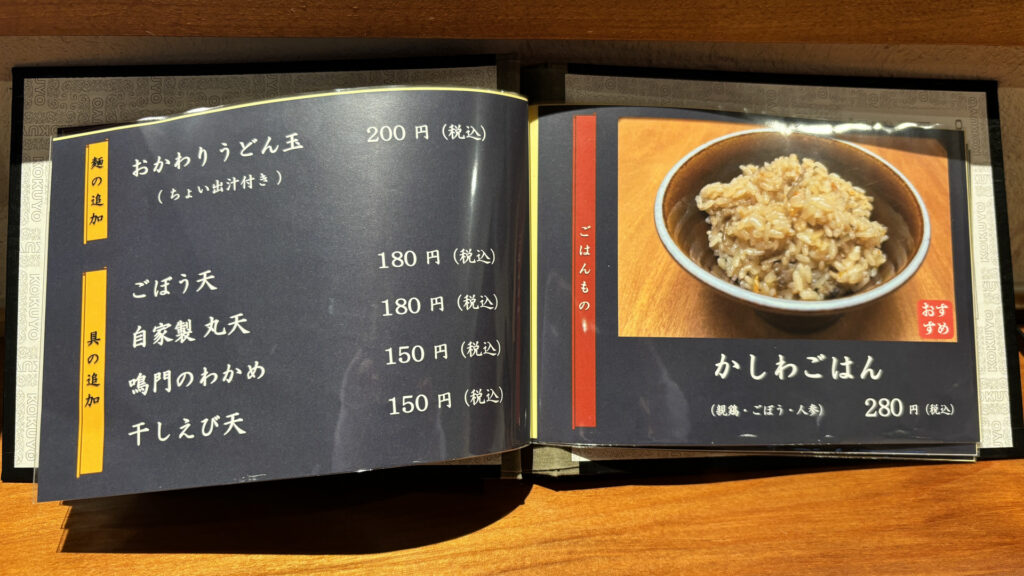 麺の追加
おかわりうどん玉 200 円 (税込)
(ちょい出汁付き)
具の追加
ごぼう天 180 円 (税込)
自家製 丸天 180 円 (税込)
鳴門のわかめ 150 円 (税込)
干しえび天 150 円 (税込)
ごはんもの
おすすめ
かしわごはん
(親鶏・ごぼう・人参) 280 円 (税込)
KOKUYO